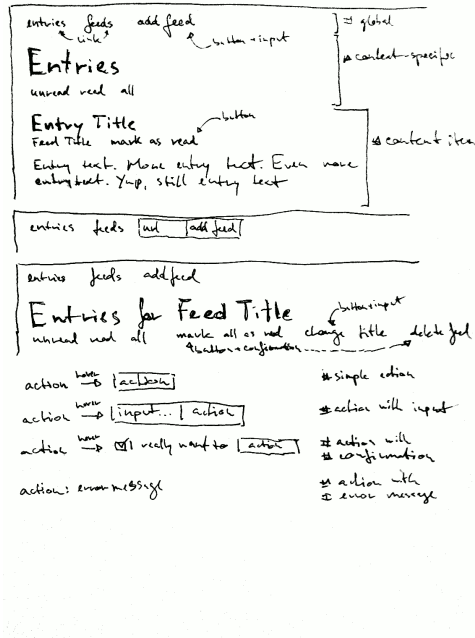 entries feeds add feed # global
link button + input
Entries # content-specific
unread read all
Entry Title button
Feed Title mark as read
# content item
Entry text. More entry text. Even more
entry text. Yup, still entry text
entries feeds url add feed
entries feeds add feed
Entries for Feed Title button + input
unread read all mark all as read change title delete feed
button + confirmation
action hover action # simple action
action hover input... action # action with input
action hover I really want to action # action with
# confirmation
action: error message # action with
# error message